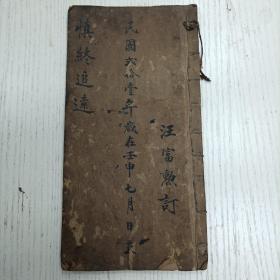 汪富勲訂
民國弍拾壹年歲在壬申七月日立
慎終追遠